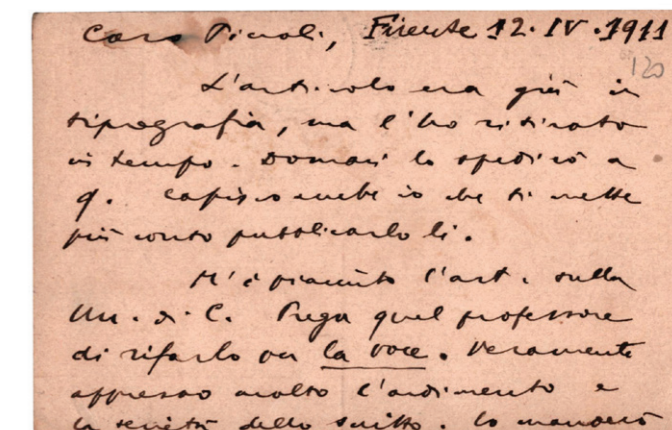 Caro Piccoli, Firenze 12. IV. 1911
120
L'articolo era già in
tipografia, ma l'ho ritirato
in tempo. Domani lo spedirò a
q. Capisco anche io che ti mette
più conto pubblicarlo lì.
M'è piaciuto l'art. sulla
Un. di C. Prega quel professore
di rifarlo per la voce. Veramente
apprezzo molto l'ardimento e
la serietà dello scritto. Lo manderò